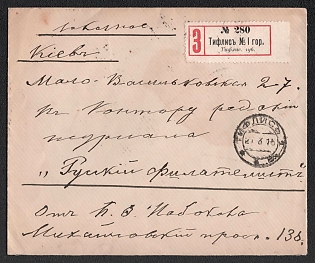 Заказное.
№ 280
З
Тифлисъ № 1 гор.
Тифлис. губ.
Кіевъ
Мало-Васильковская 27.
въ Контору редакціи
журнала
„Русскій Филателистъ"
ТИФЛИСЪ
Отъ П. З.
Михайловскій просп. 138.